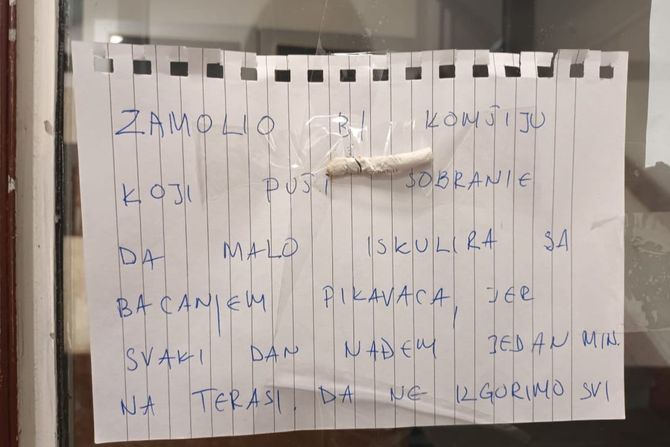 ZAMOLIO BI KOMŠIJU
KOJI PUŠI SOBRANIE
DA MALO ISKULIRA SA
BACANJEM PIKAVACA, JER
SVAKI DAN NAĐEM JEDAN MIN.
NA TERASI. DA NE IZGORIMO SVI